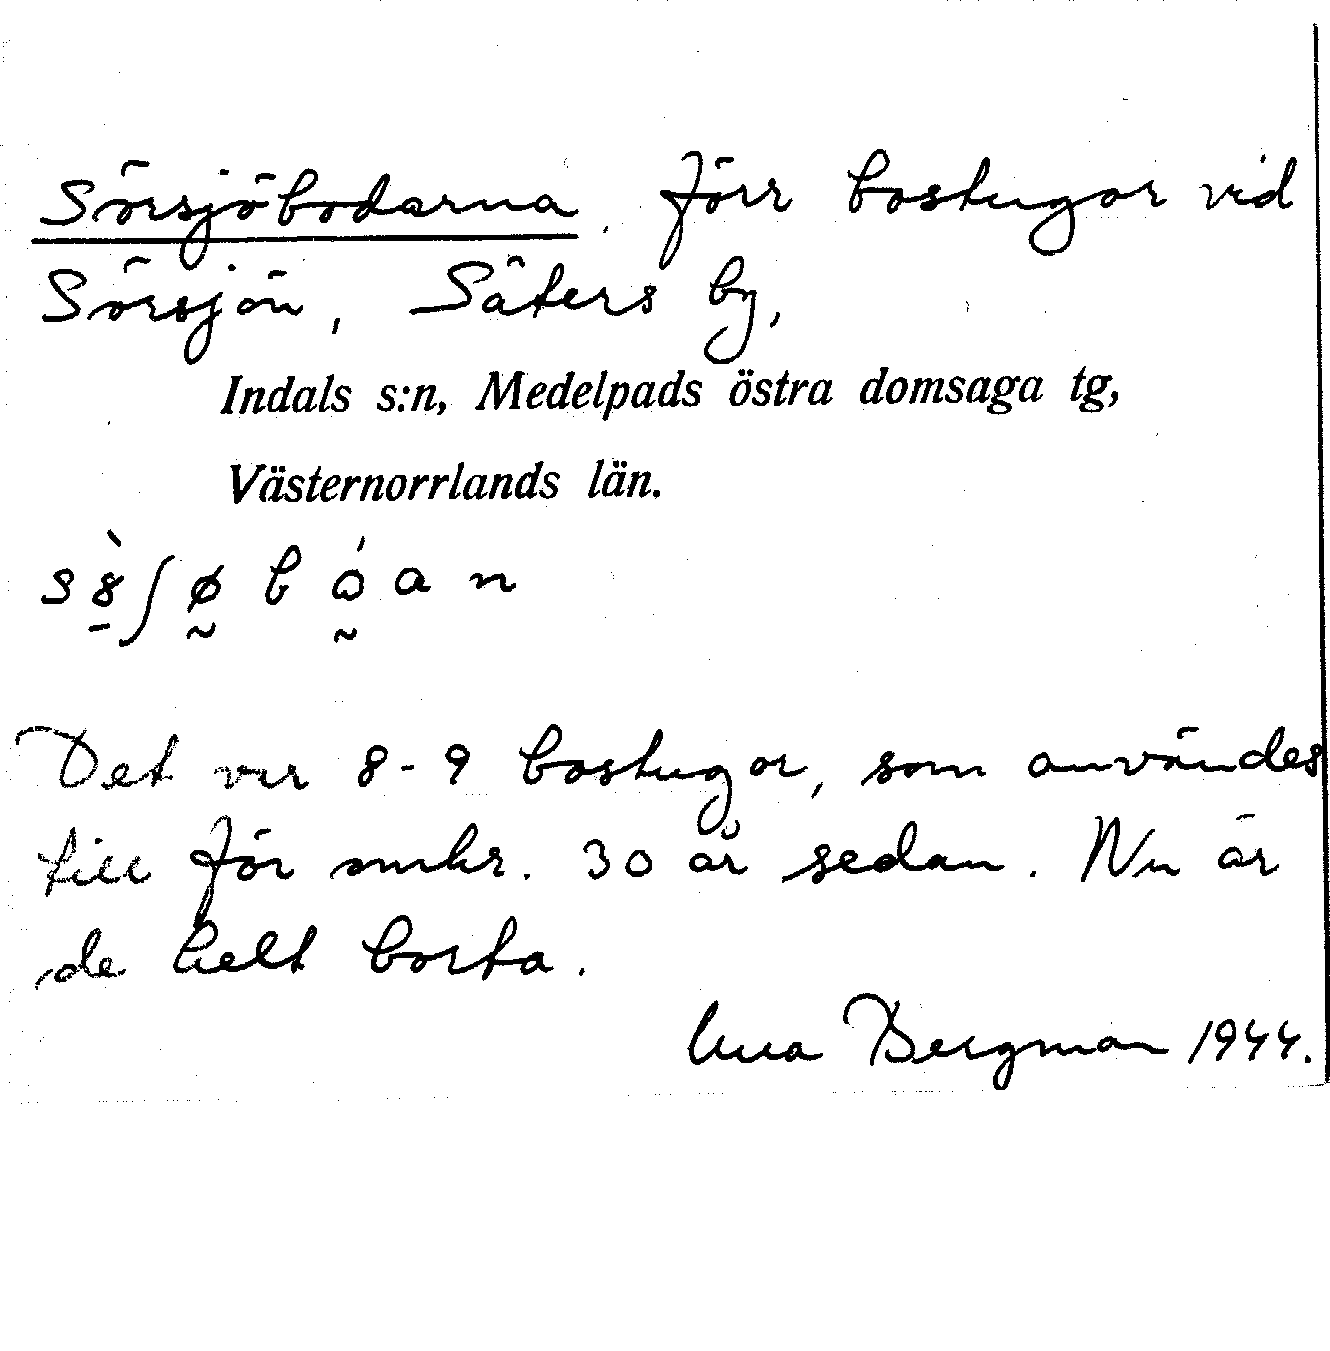 Sörsjöbodarna. förr bostugor vid
Sörsjön, Säters by,
Indals s:n, Medelpads östra domsaga tg,
Västernorrlands län.
Det var 8-9 bostugor, som användes
till för omkr. 30 år sedan. Nu är
de helt borta.
Bergman 1944.